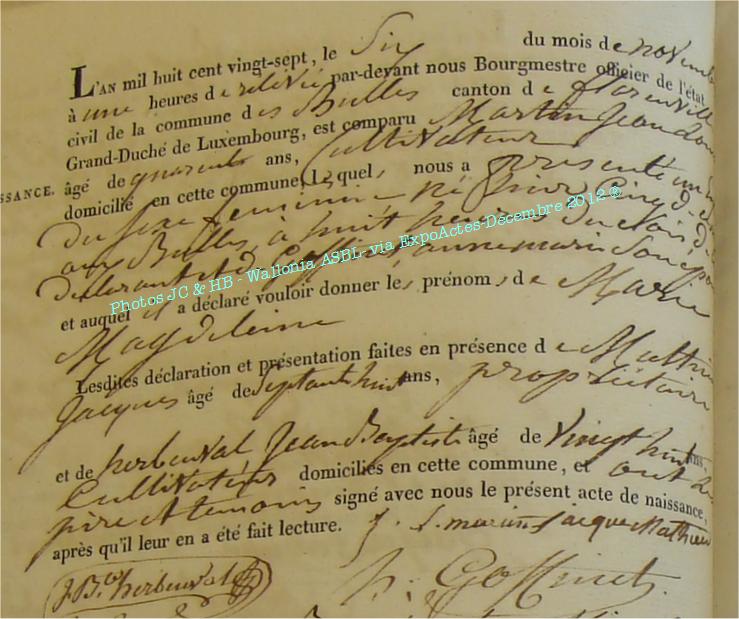 L'AN mil huit cent vingt-sept, le Six du mois de novembre
à une heures de relevée par-devant nous Bourgmestre officier de l'état
civil de la commune des Bulles canton de florenville
Grand-Duché de Luxembourg, est comparu Martin Jean
SSANCE. âgé de quarente ans, Cultivateur
domicilié en cette commune Lequel, nous a présenté un
du sexe féminin né hier Cinq du
aux Bulles, à huit heures du soir, de
déclarant et de anne marie Son épouse
Photos JC & HB - Wallonia ASBL- via ExpoActes-Décembre 2012 ©
et auquel il a déclaré vouloir donner les prénoms de Marie
Magdeleine
Lesdites déclaration et présentation faites en présence de Mathieu
Jacques âgé de Septante huit ans, propriétaire
et de herbeuval Jean Baptiste âgé de Vingt huit ans,
Cultivateur domiciliés en cette commune, et ont les
père et temoins signé avec nous le présent acte de naissance,
après qu'il leur en a été fait lecture. J. J. martin Jacque Mathieu
J. Bte herbeuval h. Goffinet.